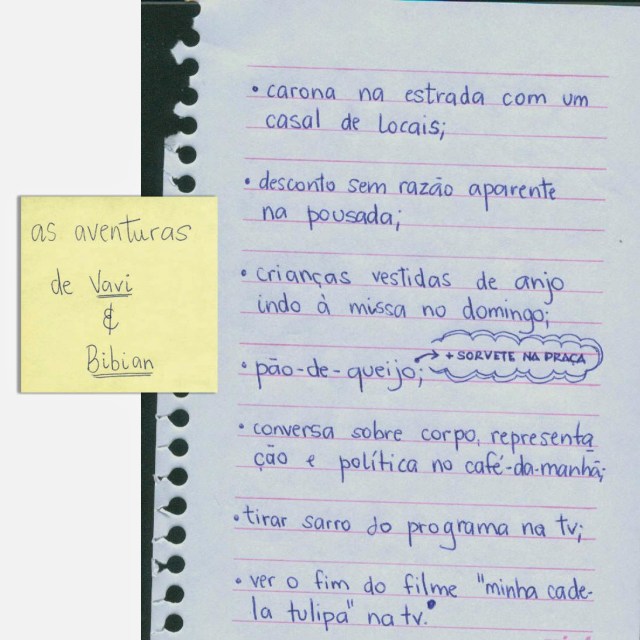 as aventuras
de Vavi
&
Bibian
• carona na estrada com um
casal de locais;
• desconto sem razão aparente
na pousada;
• crianças vestidas de anjo
indo à missa no domingo;
• pão-de-queijo; → + SORVETE NA PRAÇA
• conversa sobre corpo, representa
ção e política no café-da-manhã;
• tirar sarro do programa na tv;
• ver o fim do filme "minha cade-
la tulipa" na tv.